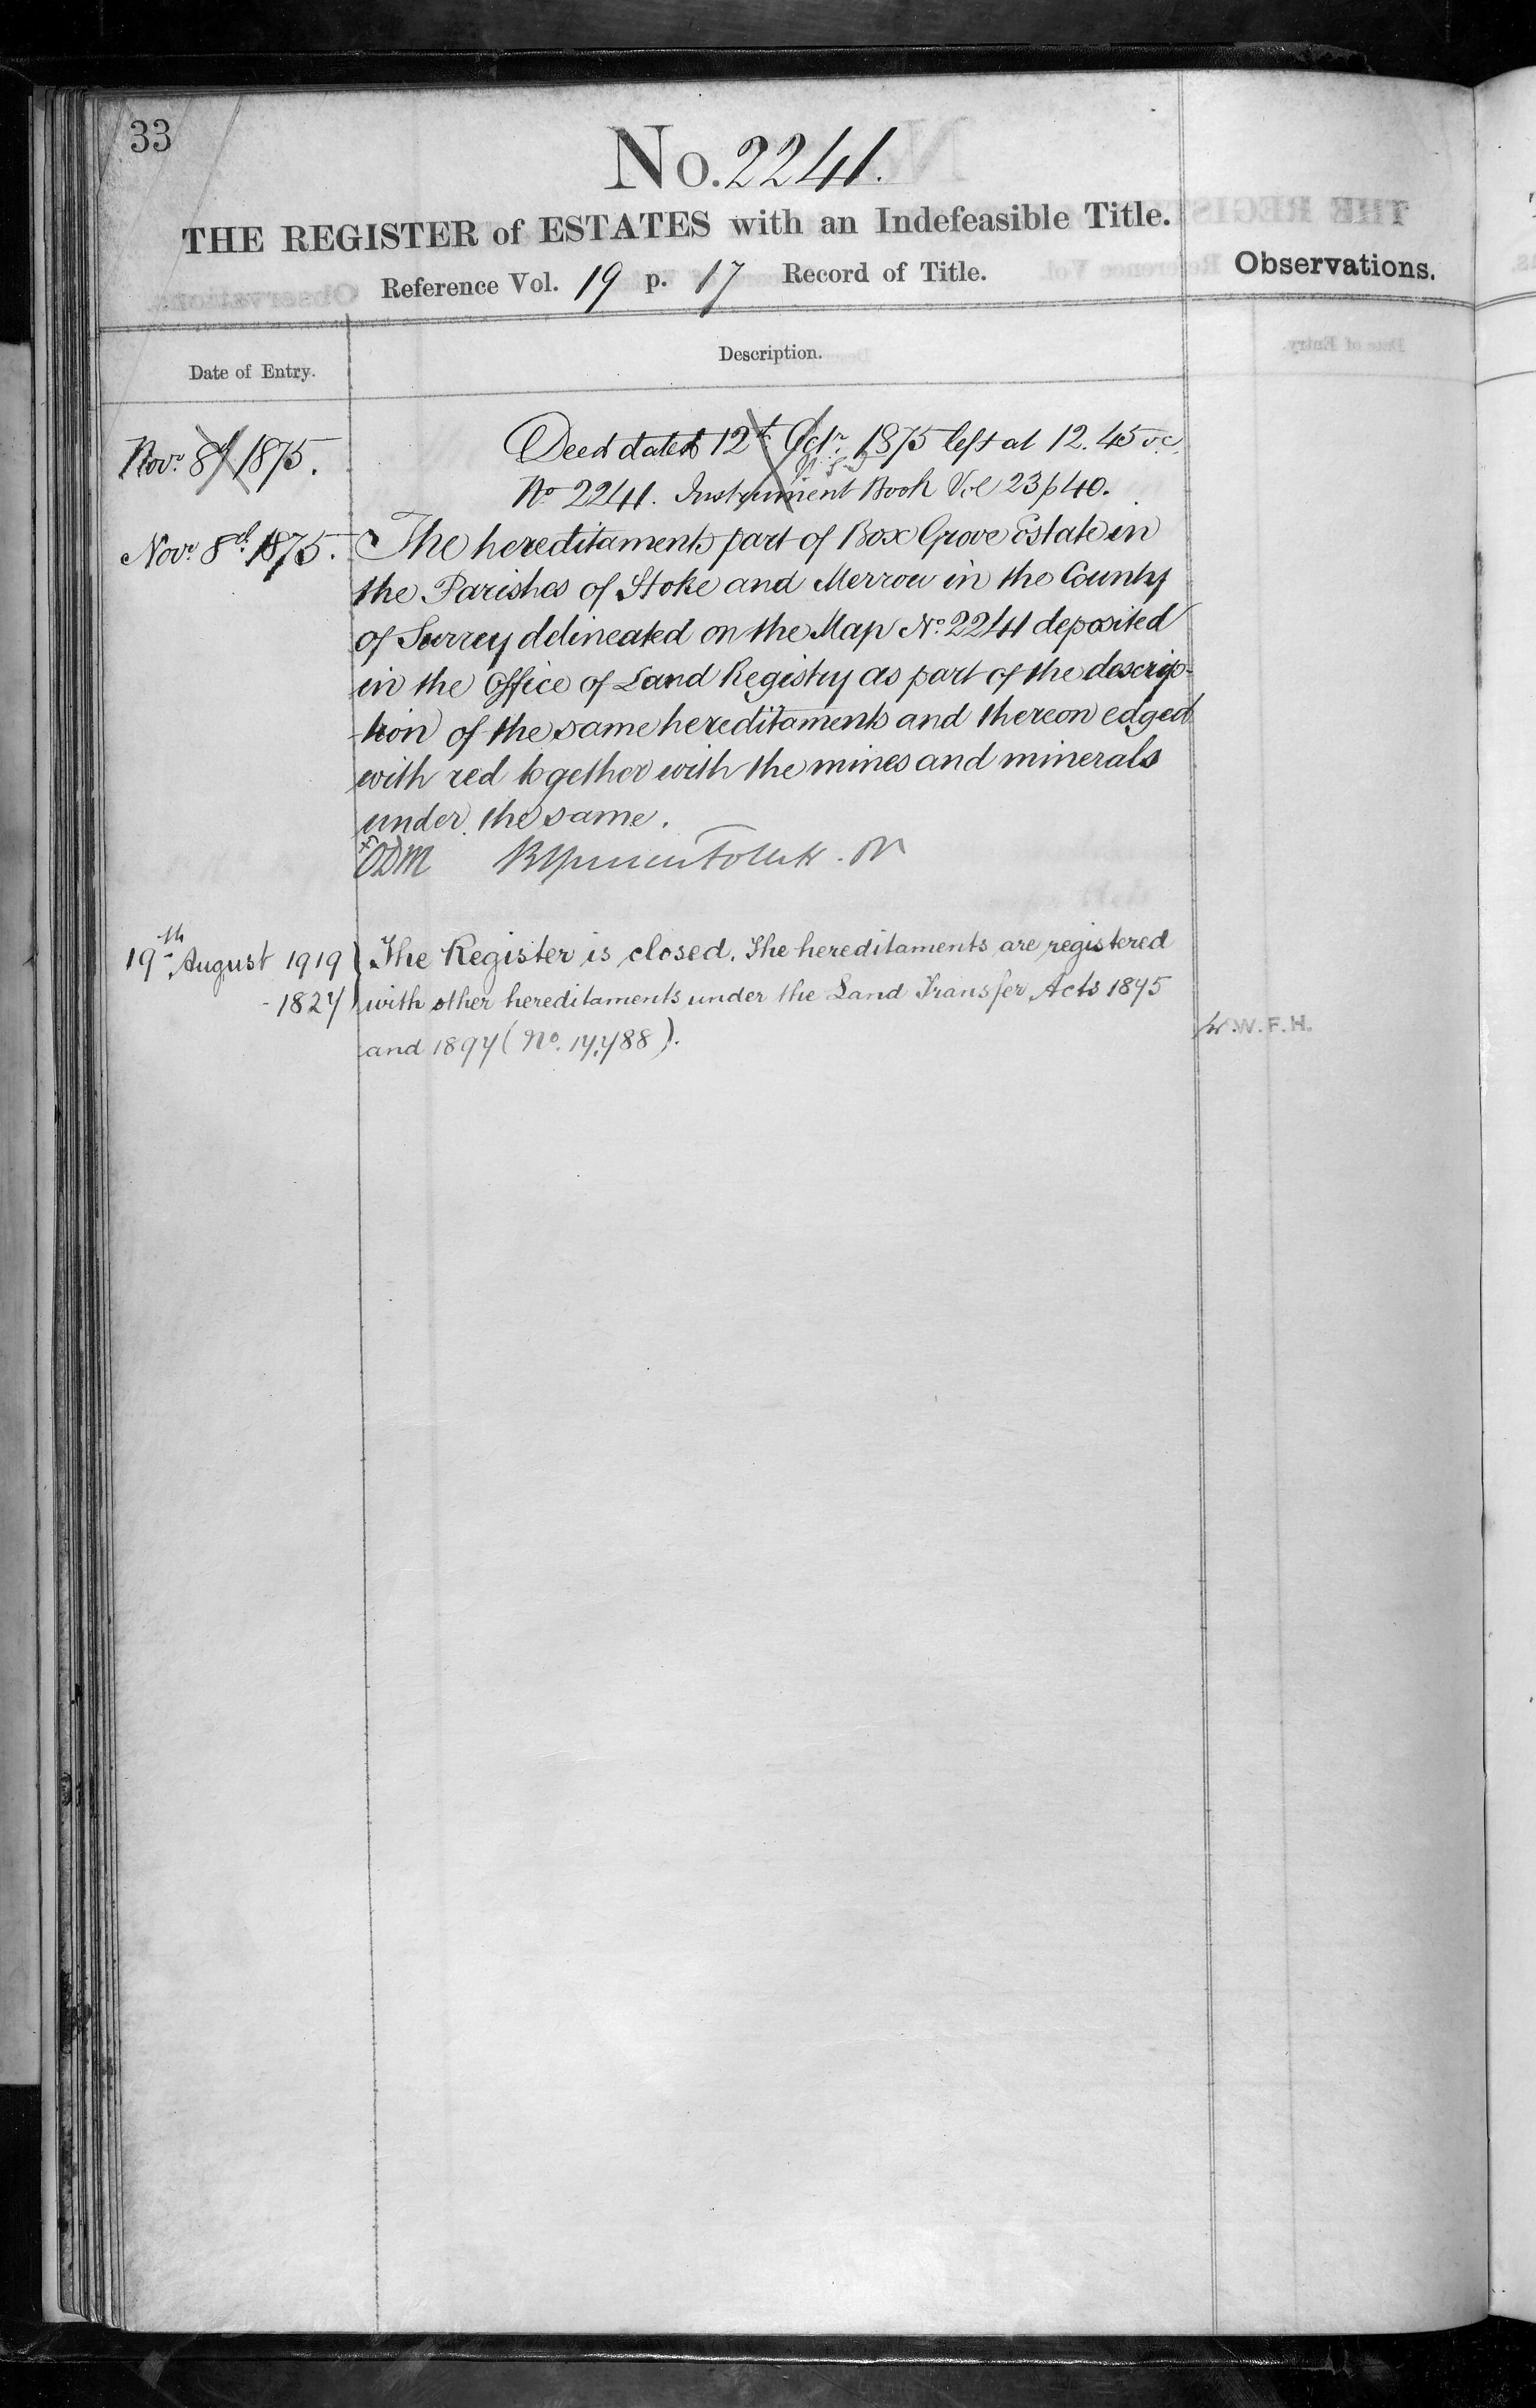 33
No. 2241.
THE REGISTER of ESTATES with an Indefeasible Title.
Reference Vol. 19 p. 17 Record of Title.
Observations.
Date of Entry.
Description.
Novr. 8th 1875.
Deed dated 12th Octr. 1875 left at 12.45 oc.
No 2241. Instrument Book Vol 23 p 40.
Novr. 8th 1875.
The hereditaments part of Box Grove Estate in
the Parishes of Stoke and Merrow in the County
of Surrey delineated on the Map No. 2241 deposited
in the Office of Land Registry as part of the descrip-
-tion of the same hereditaments and thereon edged
with red together with the mines and minerals
under the same.
ODM
19th August 1919
-1827
The Register is closed. The hereditaments are registered
with other hereditaments under the Land Transfer Acts 1875
and 1897 (No. 17,788).
W.F.H.